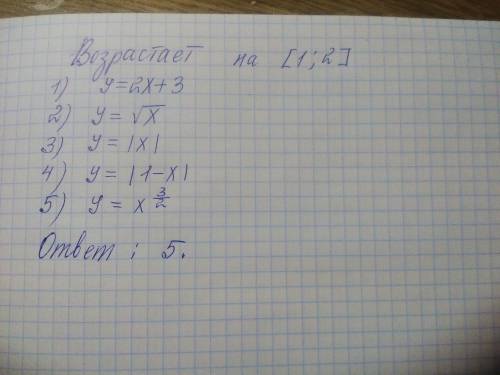 Возрастает на [1; 2]
1) y=2x+3
2) y = √x
3) y = |x|
4) y = |1-x|
5) y = x^(3/2)
Ответ: 5.